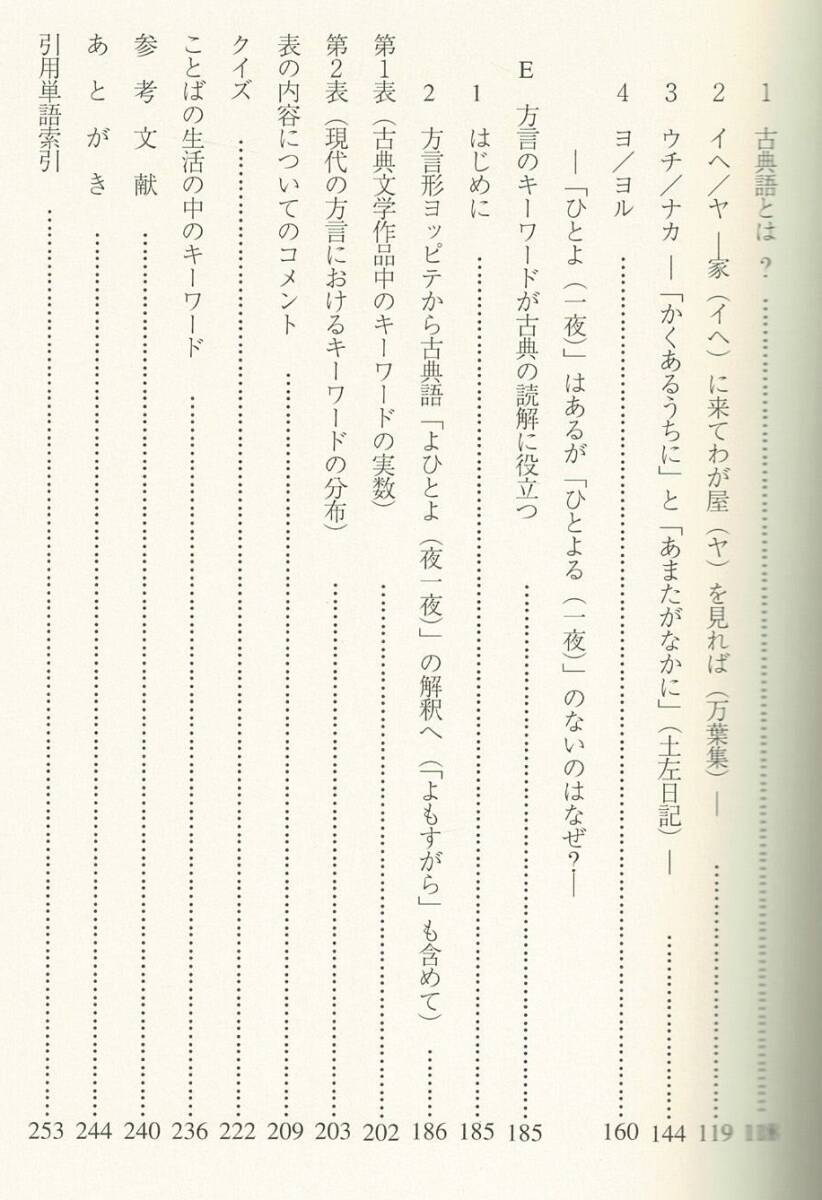 1 古典語とは? ……
2 イヘ/ヤ ―家(イヘ)に来てわが屋(ヤ)を見れば(万葉集)― …… 119
3 ウチ/ナカ ―「かくあるうちに」と「あまたがなかに」(土左日記)― …… 144
4 ヨ/ヨル …… 160
―「ひとよ(一夜)」はあるが「ひとよる(一夜)」のないのはなぜ?―
E 方言のキーワードが古典の読解に役立つ …… 185
1 はじめに …… 185
2 方言形ヨッピテから古典語「よひとよ(夜一夜)」の解釈へ(「よもすがら」も含めて) …… 186
第1表(古典文学作品中のキーワードの実数) …… 202
第2表(現代の方言におけるキーワードの分布) …… 203
表の内容についてのコメント …… 209
クイズ …… 222
ことばの生活の中のキーワード …… 236
参考文献 …… 240
あとがき …… 244
引用単語索引 …… 253